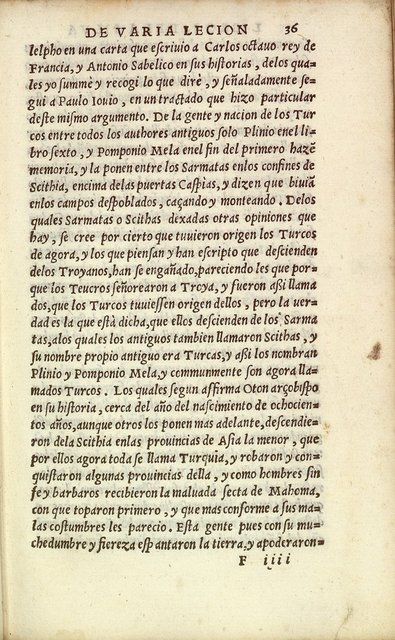 DE VARIA LECION 36
lelpho en una carta que escriuio a Carlos octauo rey de
Francia, y Antonio Sabelico en sus historias, delos qua⸗
les yo summè y recogi lo que dirè, y señaladamente se⸗
gui a Paulo Iouio, en un tractado que hizo particular
deste mismo argumento. De la gente y nacion de los Tur
cos entre todos los authores antiguos solo Plinio enel li⸗
bro sexto, y Pomponio Mela enel fin del primero hazẽ
memoria, y la ponen entre los Sarmatas enlos confines de
Scithia, encima delas puertas Caspias, y dizen que biuiã
enlos campos despoblados, caçando y monteando. Delos
quales Sarmatas o Scithas dexadas otras opiniones que
hay, se cree por cierto que tuuieron origen los Turcos
de agora, y los que piensan y han escripto que descienden
delos Troyanos, han se engañado, pareciendo les que por⸗
que los Teucros señorearon a Troya, y fueron aßi llama
dos, que los Turcos tuuiessen origen dellos, pero la ver⸗
dad es la que està dicha, que ellos descienden de los Sarma
tas, alos quales los antiguos tambien llamaron Scithas, y
su nombre propio antiguo era Turcas, y aßi los nombran
Plinio y Pomponio Mela, y communmente son agora lla⸗
mados Turcos. Los quales segun affirma Oton arçobispo
en su historia, cerca del año del nascimiento de ochocien⸗
tos años, aunque otros los ponen mas adelante, descendie⸗
ron dela Scithia enlas prouincias de Asia la menor, que
por ellos agora toda se llama Turquia, y robaron y con⸗
quistaron algunas prouincias della, y como hombres sin
fe y barbaros recibieron la maluada secta de Mahoma,
con que toparon primero, y que mas conforme a sus ma⸗
las costumbres les parecio. Esta gente pues con su mu⸗
chedumbre y fiereza espantaron la tierra, y apoderaron⸗
F iiii